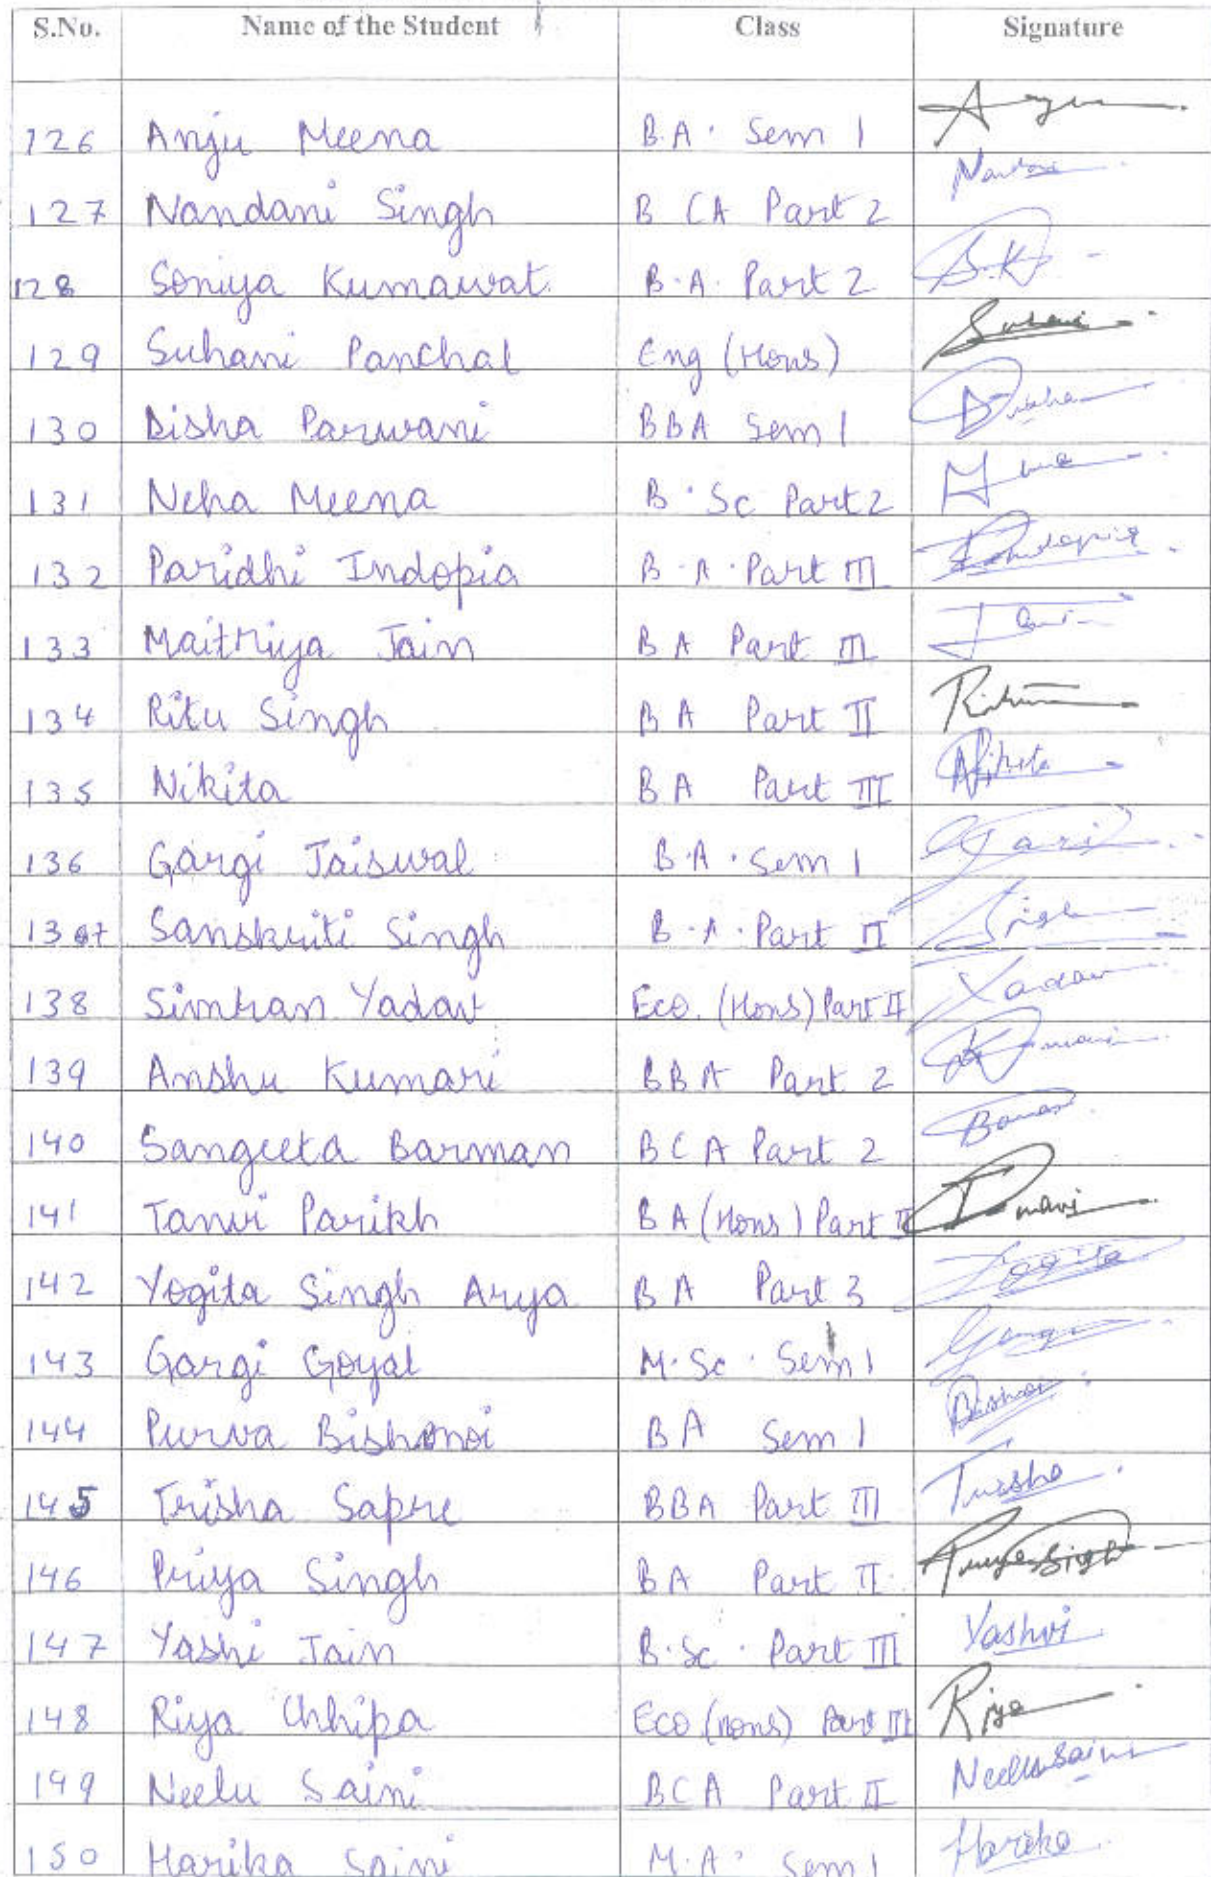 S.No. Name of the Student Class Signature
126 Anju Meena B.A. Sem 1
127 Nandani Singh B CA Part 2
128 Soniya Kumawat B.A. Part 2 S.K
129 Suhani Panchal Eng (Hons) Suhani
130 Disha Parwani BBA Sem 1 Disha
131 Neha Meena B.Sc Part 2
132 Paridhi Indopia B.A. Part III
133 Maitriya Jain BA Part III
134 Ritu Singh BA Part II
135 Nikita BA Part III
136 Gargi Jaiswal B.A. Sem 1
137 Sanskriti Singh B.A. Part II
138 Simran Yadav Eco. (Hons) Part II Yadav
139 Anshu Kumari BBA Part 2
140 Sangeeta Barman BCA Part 2
141 Tanvi Parikh BA (Hons) Part II
142 Yogita Singh Arya BA Part 3 Yogita
143 Gargi Goyal M.Sc. Sem 1
144 Purva Bishonoi BA Sem 1
145 Trisha Sapre BBA Part III
146 Priya Singh BA Part II Priya Singh
147 Yashi Jain B.Sc. Part III Yashvi
148 Riya Chhipa Eco (Hons) Part III Riya
149 Neelu Saini BCA Part II Neelu Saini
150 Harika Saini M.A. Sem 1 Harika